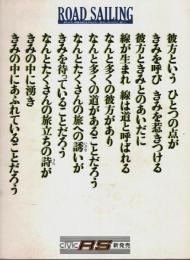 ROAD SAILING
彼方という ひとつの点が
きみを呼び きみを惹きつける
彼方ときみとのあいだに
線が生まれ 線は道と呼ばれる
なんと多くの彼方があり
なんと多くの道があることだろう
なんとたくさんの旅への誘いが
きみを待っていることだろう
なんとたくさんの旅立ちの詩が
きみの中に湧き
きみの中にあふれていることだろう
CIVIC RS 新発売